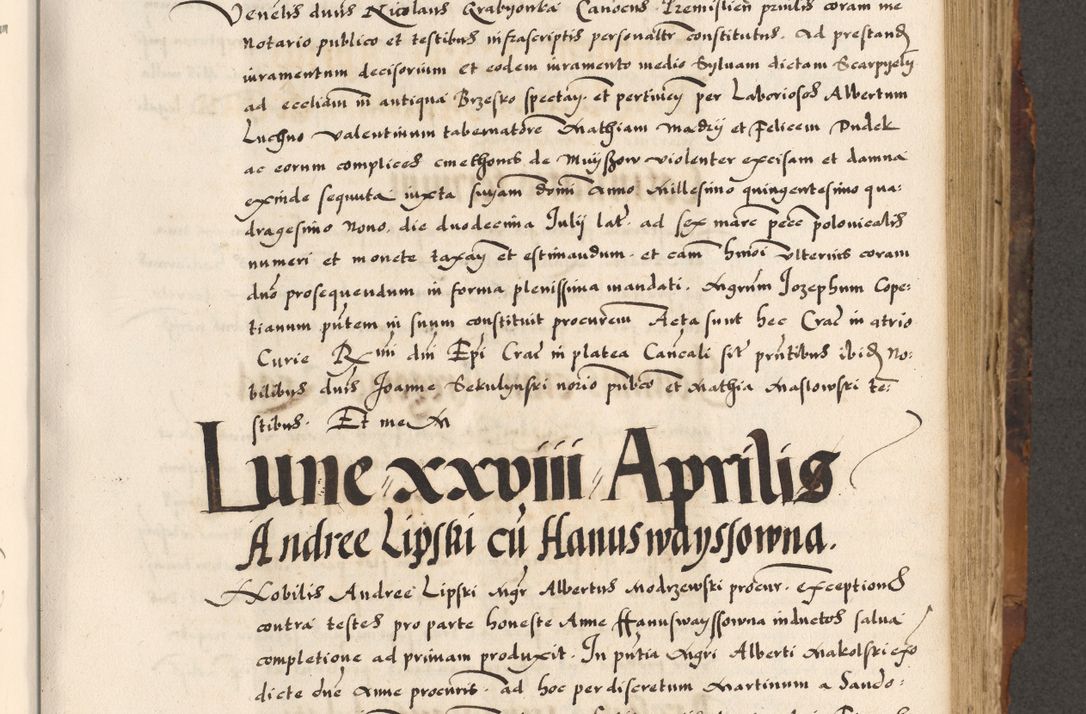 Venelis dnus Nicolaus Grabyonka Canocus Premislien prnilis coram me
notario publico et testibus infrascriptis personalr constitutus. Ad prestand
iuramentum decisorium et eodem iuramento medio Sylvam dictam Scarpyeny
ad eccliam in antiqua Brzesko spectan. et pertinen per Laboriosos Albertum
Luchno Valentinum tabernatore Mathiam Madrij et Felicem Dudek
ac eorum complices cmethones de Muyszow violenter excisam et damna
exinde sequuta iuxta suyam domi Anno Millesimo quingentesimo qua:
dragesimo Nono. die duodecima Julij lat. ad sex marc pecc polonicalis
numeri et monete taxan et estimandum. et eam hmoi ulterius coram
dno prosequendum in forma plenissima mandati. Mgrum Jozephum Cope:
tianum pntem in suum constituit procurem Acta sunt hec Crac in atrio
Curie Rmi dni Epi Crac in platea Cancali sit pntibus ibid No:
bilibus dnis Joanne Sekulynski norio pubco et Mathia Maslowski te:
stibus. Et me M
Lune xxviii Aprilis
Andree Lipski cu Hanuswayssowna.
Nobilis Andree Lipski Mgr Albertus Modrzewski procur. exceptiones
contra testes pro parte honeste Anne Hanuswayssowna inductos salva
completione ad primam produxit. In pntia Mgri Alberti Makolski expo
dicte dne Anne procuris. ad hoc per discretum Martinum a Sando: